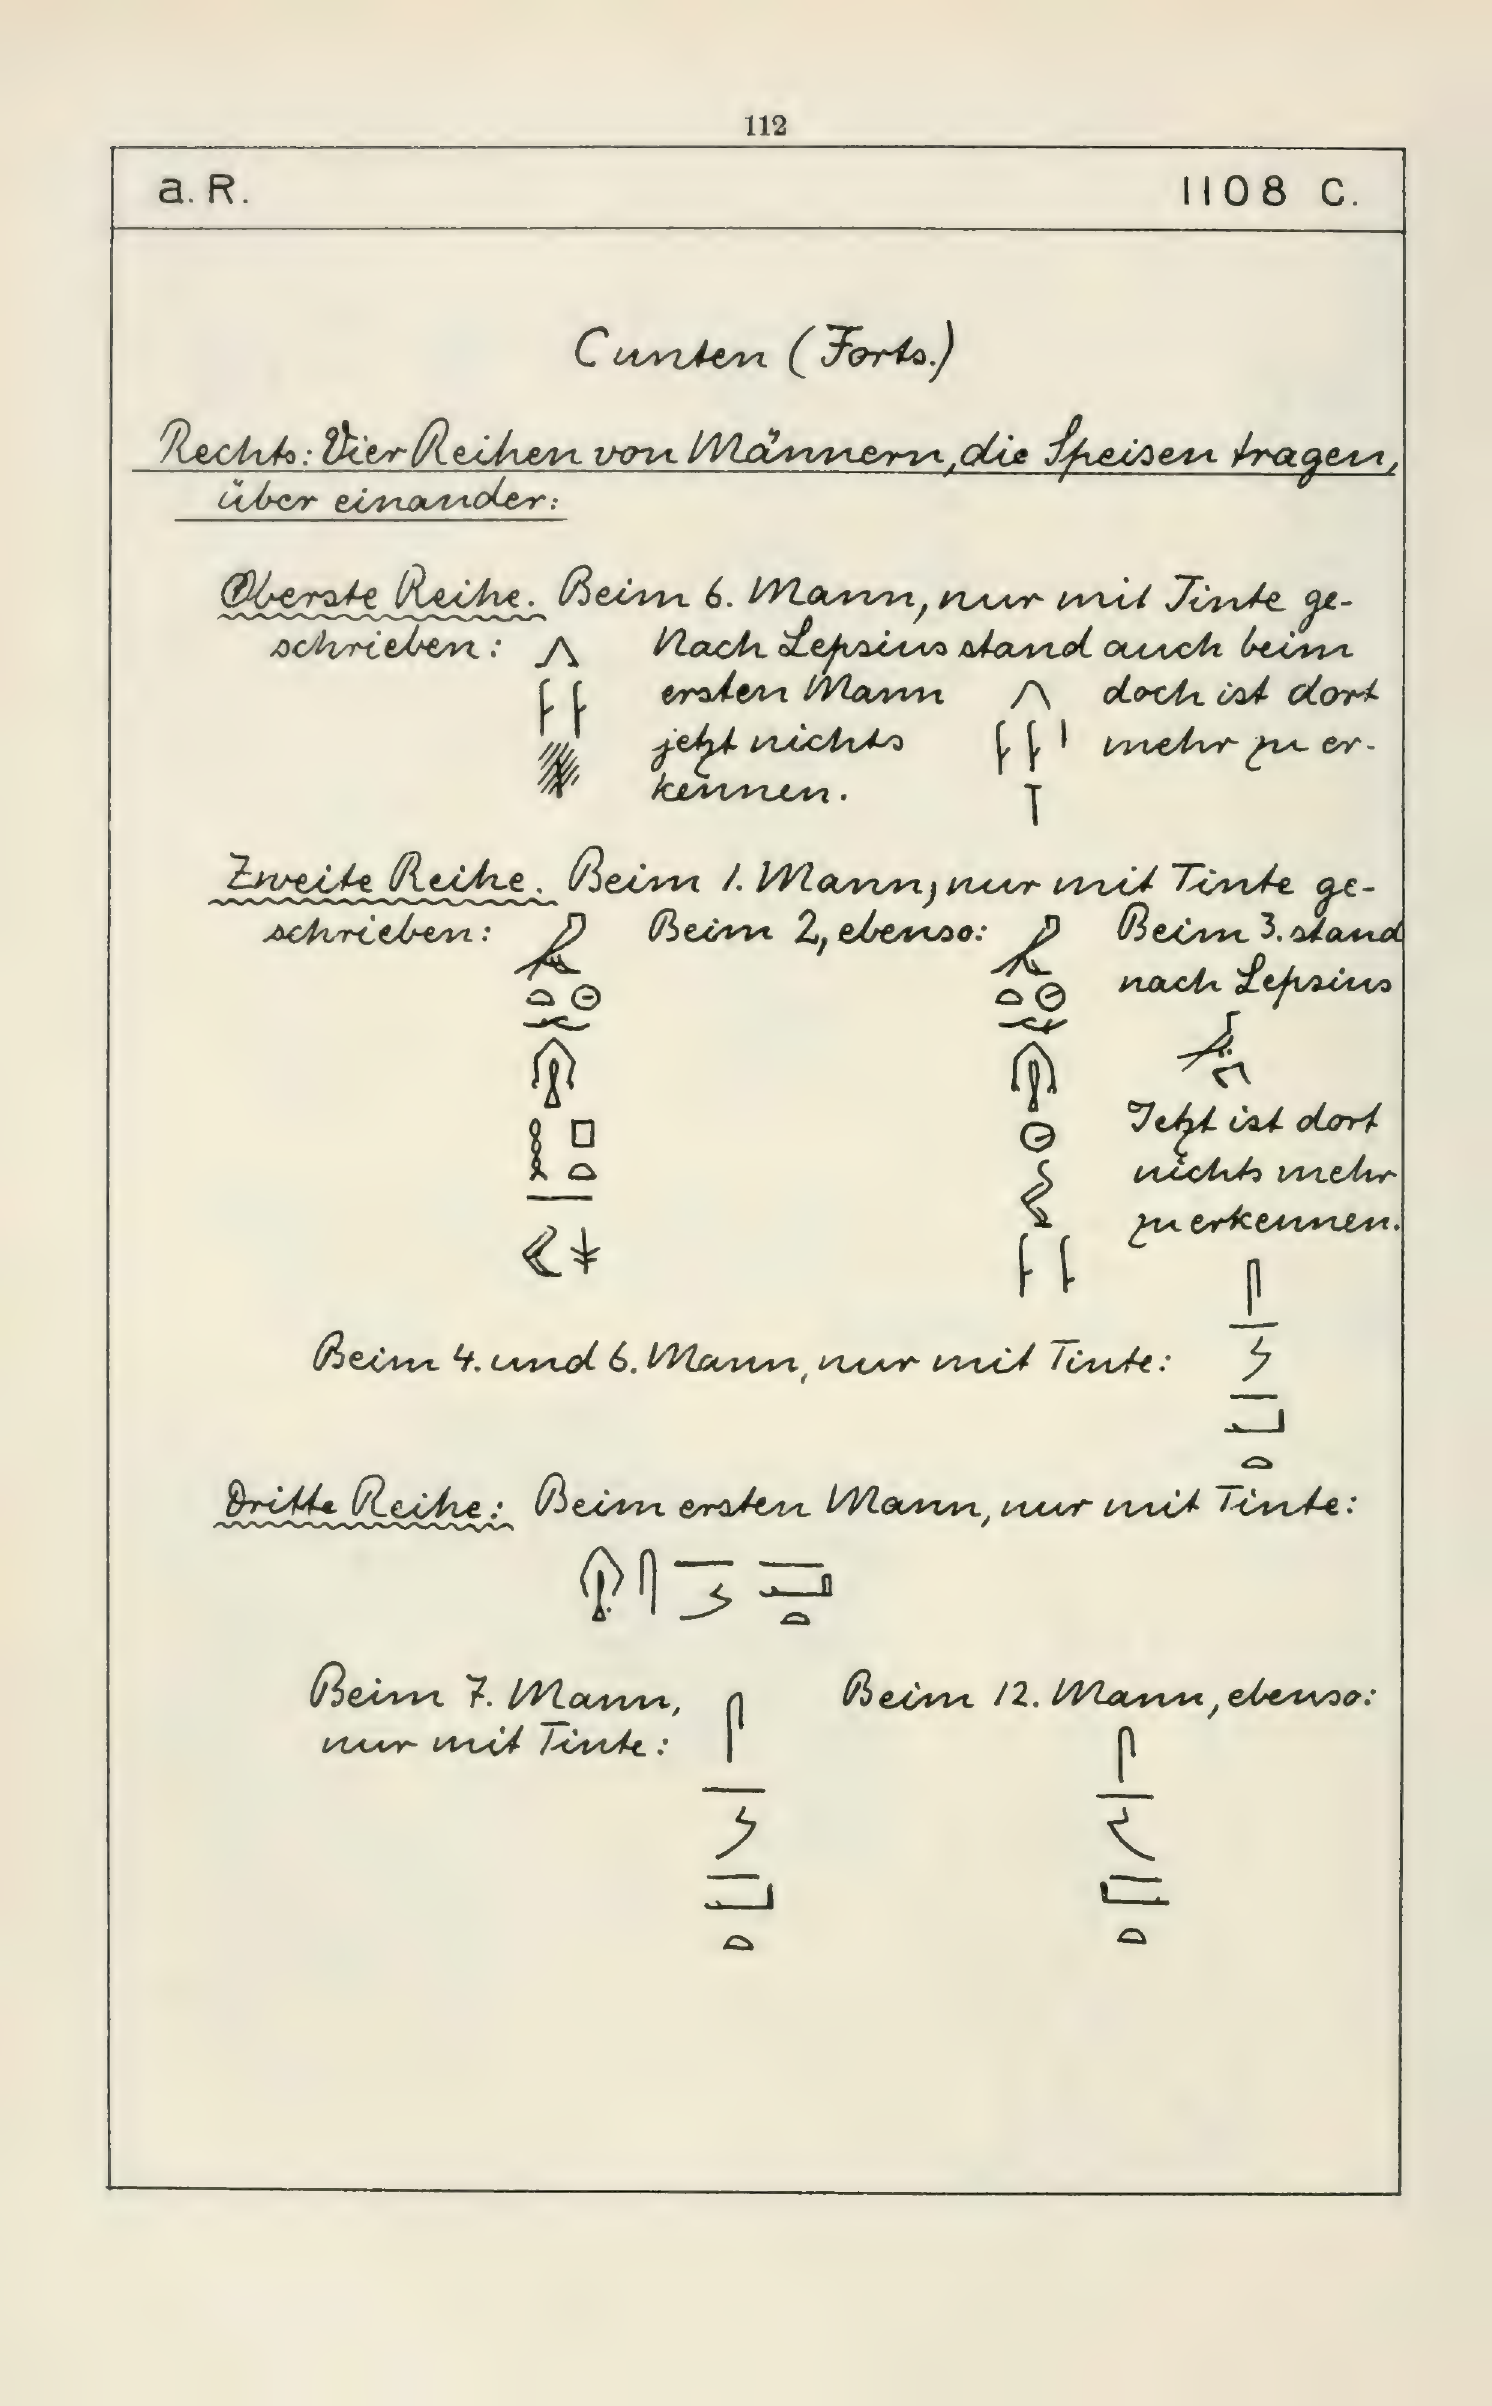 112
a. R. 1108 C.
Cunten (Forts.)
Rechts: Vier Reihen von Männern, die Speisen tragen,
über einander:
Oberste Reihe. Beim 6. Mann, nur mit Tinte ge-
schrieben: Nach Lepsius stand auch beim
ersten Mann doch ist dort
jetzt nichts mehr zu er-
kennen.
Zweite Reihe. Beim 1. Mann, nur mit Tinte ge-
schrieben: Beim 2, ebenso: Beim 3. stand
nach Lepsius
Jetzt ist dort
nichts mehr
zu erkennen.
Beim 4. und 6. Mann, nur mit Tinte:
Dritte Reihe: Beim ersten Mann, nur mit Tinte:
Beim 7. Mann, Beim 12. Mann, ebenso:
nur mit Tinte: